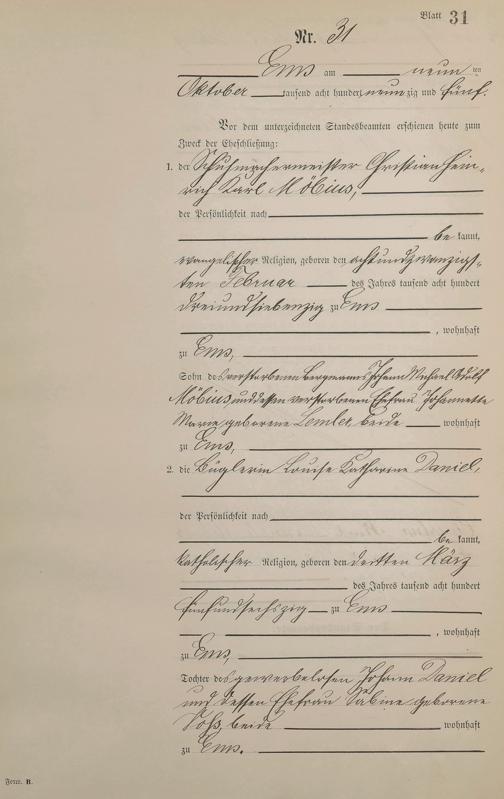 Blatt 31
Nr. 31
Ems am neunten
Oktober tausend acht hundert neunzig und fünf.
Vor dem unterzeichneten Standesbeamten erschienen heute zum
Zweck der Eheschließung:
1. der Schuhmachermeister Christian Hein-
rich Karl Möbius,
der Persönlichkeit nach
be kannt,
evangelischer Religion, geboren den achtundzwanzigs-
ten Februar des Jahres tausend acht hundert
dreiundsiebenzig zu Ems
, wohnhaft
zu Ems,
Sohn des verstorbenen Bergmanns Johann Michael Adolf
Möbius und dessen verstorbenen Ehefrau Johannette
Marie geborene Lemler, beide wohnhaft
zu Ems,
2. die Büglerin Louise Katharine Daniel,
der Persönlichkeit nach
be kannt,
katholischer Religion, geboren den dritten März
des Jahres tausend acht hundert
fünfundsechszig zu Ems
, wohnhaft
zu Ems,
Tochter des gewerbelosen Johann Daniel
und dessen Ehefrau Sabine geborene
beide wohnhaft
zu Ems.
Form. B.